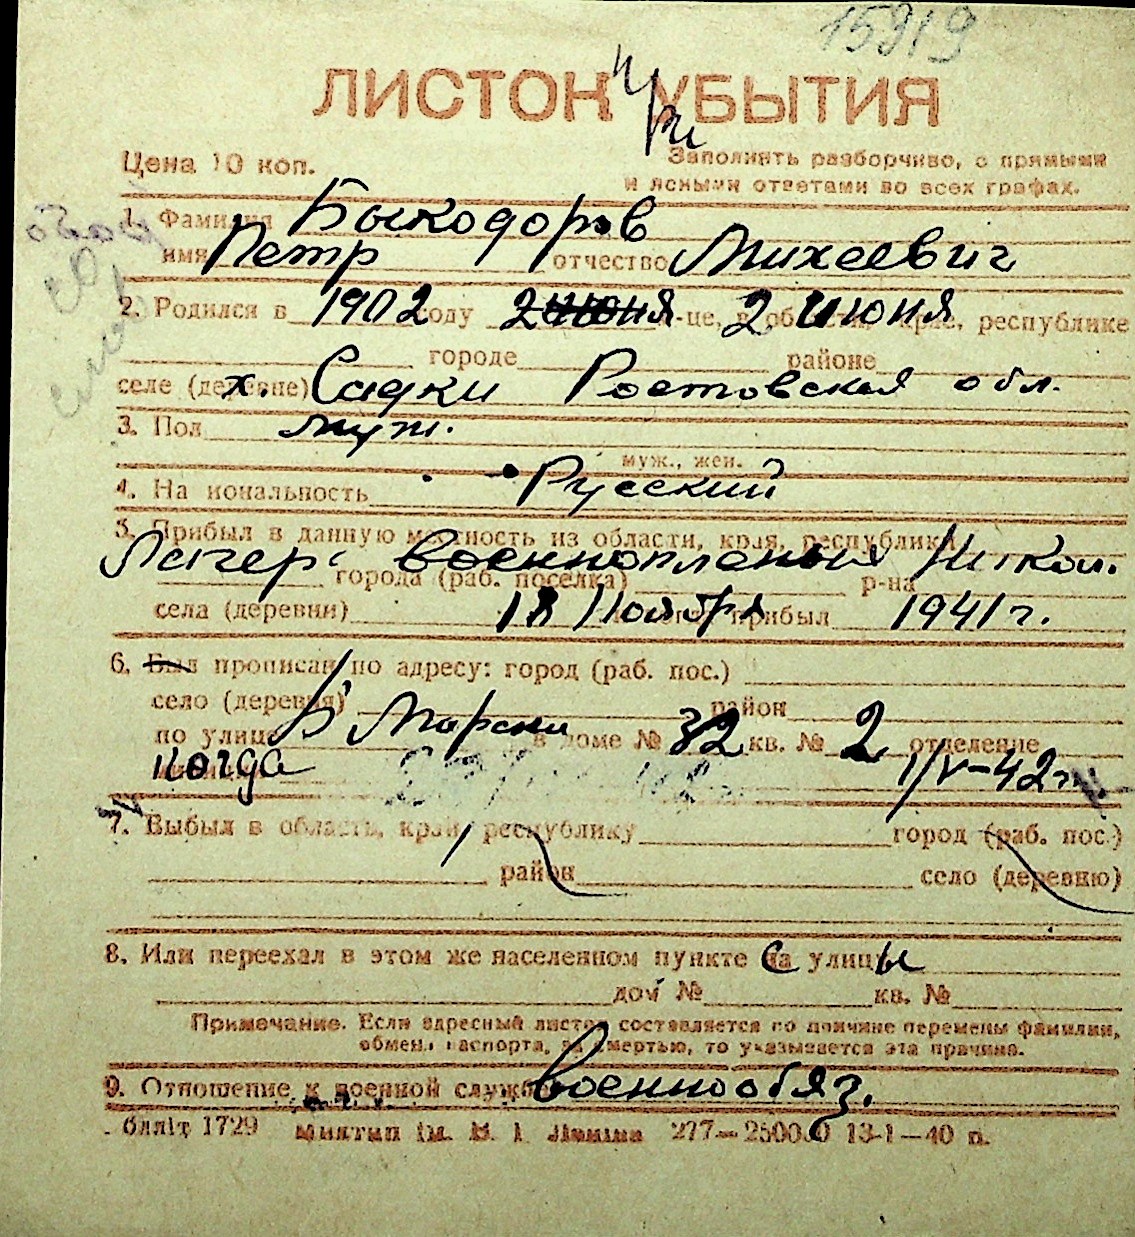 15919
ЛИСТОК УБЫТИЯ
Цена 10 коп.
Заполнять разборчиво, с прямыми
и ясными ответами во всех графах.
1. Фамилия Быкодоров
имя Петр отчество Михеевич
2. Родился в 1902 году 2 июня м-це, 2 июня в области, крае, республике
городе районе
селе (деревне) х. Садки Ростовская обл.
3. Пол муж.
муж., жен.
4. Национальность Русский
5. Прибыл в данную местность из области, края, республики
Лагерь военнопленых Никол.
города (раб. поселка) р-на
села (деревни) 18 Ноября прибыл 1941 г.
6. Был прописан по адресу: город (раб. пос.)
село (деревня) район
по улице Б Морская в доме № 32 кв. № 2 отделение
когда 1/V-42 г.
7. Выбыл в область, край, республику город (раб. пос.)
район село (деревню)
8. Или переехал в этом же населенном пункте с улицы
дом № кв. №
Примечание. Если адресный листок составляется по причине перемены фамилии,
обмена паспорта, за смертью, то указывается эта причина.
9. Отношение к военной службе военнообяз.
блліт 1729 Миятип ім. В. І. Леніна 277—250000 13-1—40 п.